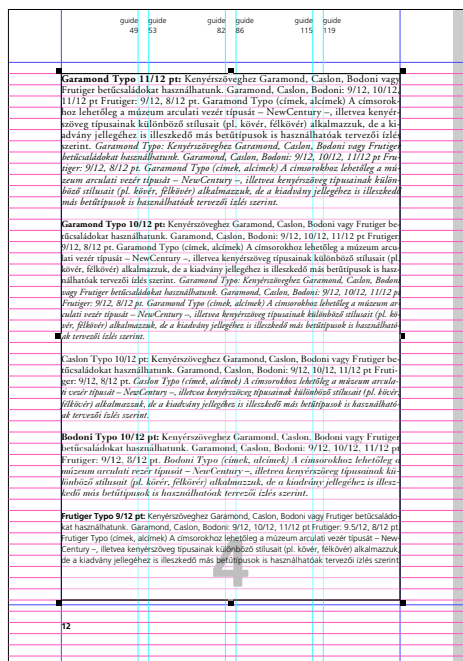 guide guide guide guide guide guide
49 53 82 86 115 119
Garamond Typo 11/12 pt: Kenyérszöveghez Garamond, Caslon, Bodoni vagy
Frutiger betűcsaládokat használhatunk. Garamond, Caslon, Bodoni: 9/12, 10/12,
11/12 pt Frutiger: 9/12, 8/12 pt. Garamond Typo (címek, alcímek) A címsorok-
hoz lehetőleg a múzeum arculati vezér típusát – NewCentury –, illetvea kenyér-
szöveg típusainak különböző stílusait (pl. kövér, félkövér) alkalmazzuk, de a ki-
advány jellegéhez is illeszkedő más betűtípusok is használhatóak tervezői ízlés
szerint. Garamond Typo: Kenyérszöveghez Garamond, Caslon, Bodoni vagy Frutiger
betűcsaládokat használhatunk. Garamond, Caslon, Bodoni: 9/12, 10/12, 11/12 pt Fru-
tiger: 9/12, 8/12 pt. Garamond Typo (címek, alcímek) A címsorokhoz lehetőleg a mú-
zeum arculati vezér típusát – NewCentury –, illetvea kenyérszöveg típusainak külön-
böző stílusait (pl. kövér, félkövér) alkalmazzuk, de a kiadvány jellegéhez is illeszkedő
más betűtípusok is használhatóak tervezői ízlés szerint.
Garamond Typo 10/12 pt: Kenyérszöveghez Garamond, Caslon, Bodoni vagy Frutiger be-
tűcsaládokat használhatunk. Garamond, Caslon, Bodoni: 9/12, 10/12, 11/12 pt Frutiger
9/12, 8/12 pt. Garamond Typo (címek, alcímek) A címsorokhoz lehetőleg a múzeum arcu-
lati vezér típusát – NewCentury –, illetvea kenyérszöveg típusainak különböző stílusait (pl.
kövér, félkövér) alkalmazzuk, de a kiadvány jellegéhez is illeszkedő más betűtípusok is hasz-
nálhatóak tervezői ízlés szerint. Garamond Typo: Kenyérszöveghez Garamond, Caslon, Bodoni
vagy Frutiger betűcsaládokat használhatunk. Garamond, Caslon, Bodoni: 9/12, 10/12, 11/12 pt
Frutiger: 9/12, 8/12 pt. Garamond Typo (címek, alcímek) A címsorokhoz lehetőleg a múzeum ar-
culati vezér típusát – NewCentury –, illetvea kenyérszöveg típusainak különböző stílusait (pl. kö-
vér, félkövér) alkalmazzuk, de a kiadvány jellegéhez is illeszkedő más betűtípusok is használható-
ak tervezői ízlés szerint.
Caslon Typo 10/12 pt: Kenyérszöveghez Garamond, Caslon, Bodoni vagy Frutiger be-
tűcsaládokat használhatunk. Garamond, Caslon, Bodoni: 9/12, 10/12, 11/12 pt Fruti-
ger: 9/12, 8/12 pt. Caslon Typo (címek, alcímek) A címsorokhoz lehetőleg a múzeum arcula-
ti vezér típusát – NewCentury –, illetvea kenyérszöveg típusainak különböző stílusait (pl. kövér,
félkövér) alkalmazzuk, de a kiadvány jellegéhez is illeszkedő más betűtípusok is használható-
ak tervezői ízlés szerint.
Bodoni Typo 10/12 pt: Kenyérszöveghez Garamond, Caslon, Bodoni vagy Frutiger
betűcsaládokat használhatunk. Garamond, Caslon, Bodoni: 9/12, 10/12, 11/12 pt
Frutiger: 9/12, 8/12 pt. Bodoni Typo (címek, alcímek) A címsorokhoz lehetőleg a
múzeum arculati vezér típusát – NewCentury –, illetvea kenyérszöveg típusainak kü-
lönböző stílusait (pl. kövér, félkövér) alkalmazzuk, de a kiadvány jellegéhez is illesz-
kedő más betűtípusok is használhatóak tervezői ízlés szerint.
Frutiger Typo 9/12 pt: Kenyérszöveghez Garamond, Caslon, Bodoni vagy Frutiger betűcsaládo-
kat használhatunk. Garamond, Caslon, Bodoni: 9/12, 10/12, 11/12 pt Frutiger: 9.5/12, 8/12 pt.
Frutiger Typo (címek, alcímek) A címsorokhoz lehetőleg a múzeum arculati vezér típusát – New-
Century –, illetvea kenyérszöveg típusainak különböző stílusait (pl. kövér, félkövér) alkalmazzuk,
de a kiadvány jellegéhez is illeszkedő más betűtípusok is használhatóak tervezői ízlés szerint.
4
12